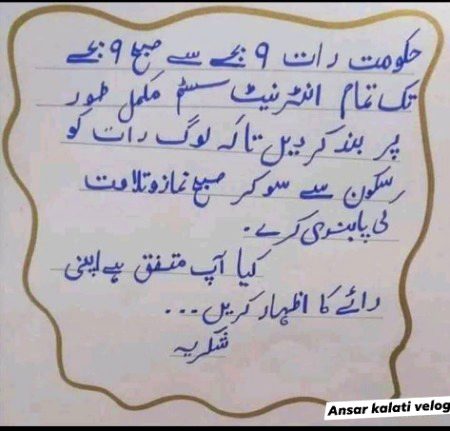 حکومت رات ۹ بجے سے صبح ۹ بجے
تک تمام انٹرنیٹ سسٹم مکمل طور
پر بند کر دیں تاکہ لوگ رات کو
سکون سے سو کر صبح نماز و تلاوت
کی پابندی کرے۔
کیا آپ متفق ہے اپنی
رائے کا اظہار کریں...
شکریہ
Ansar kalati velog